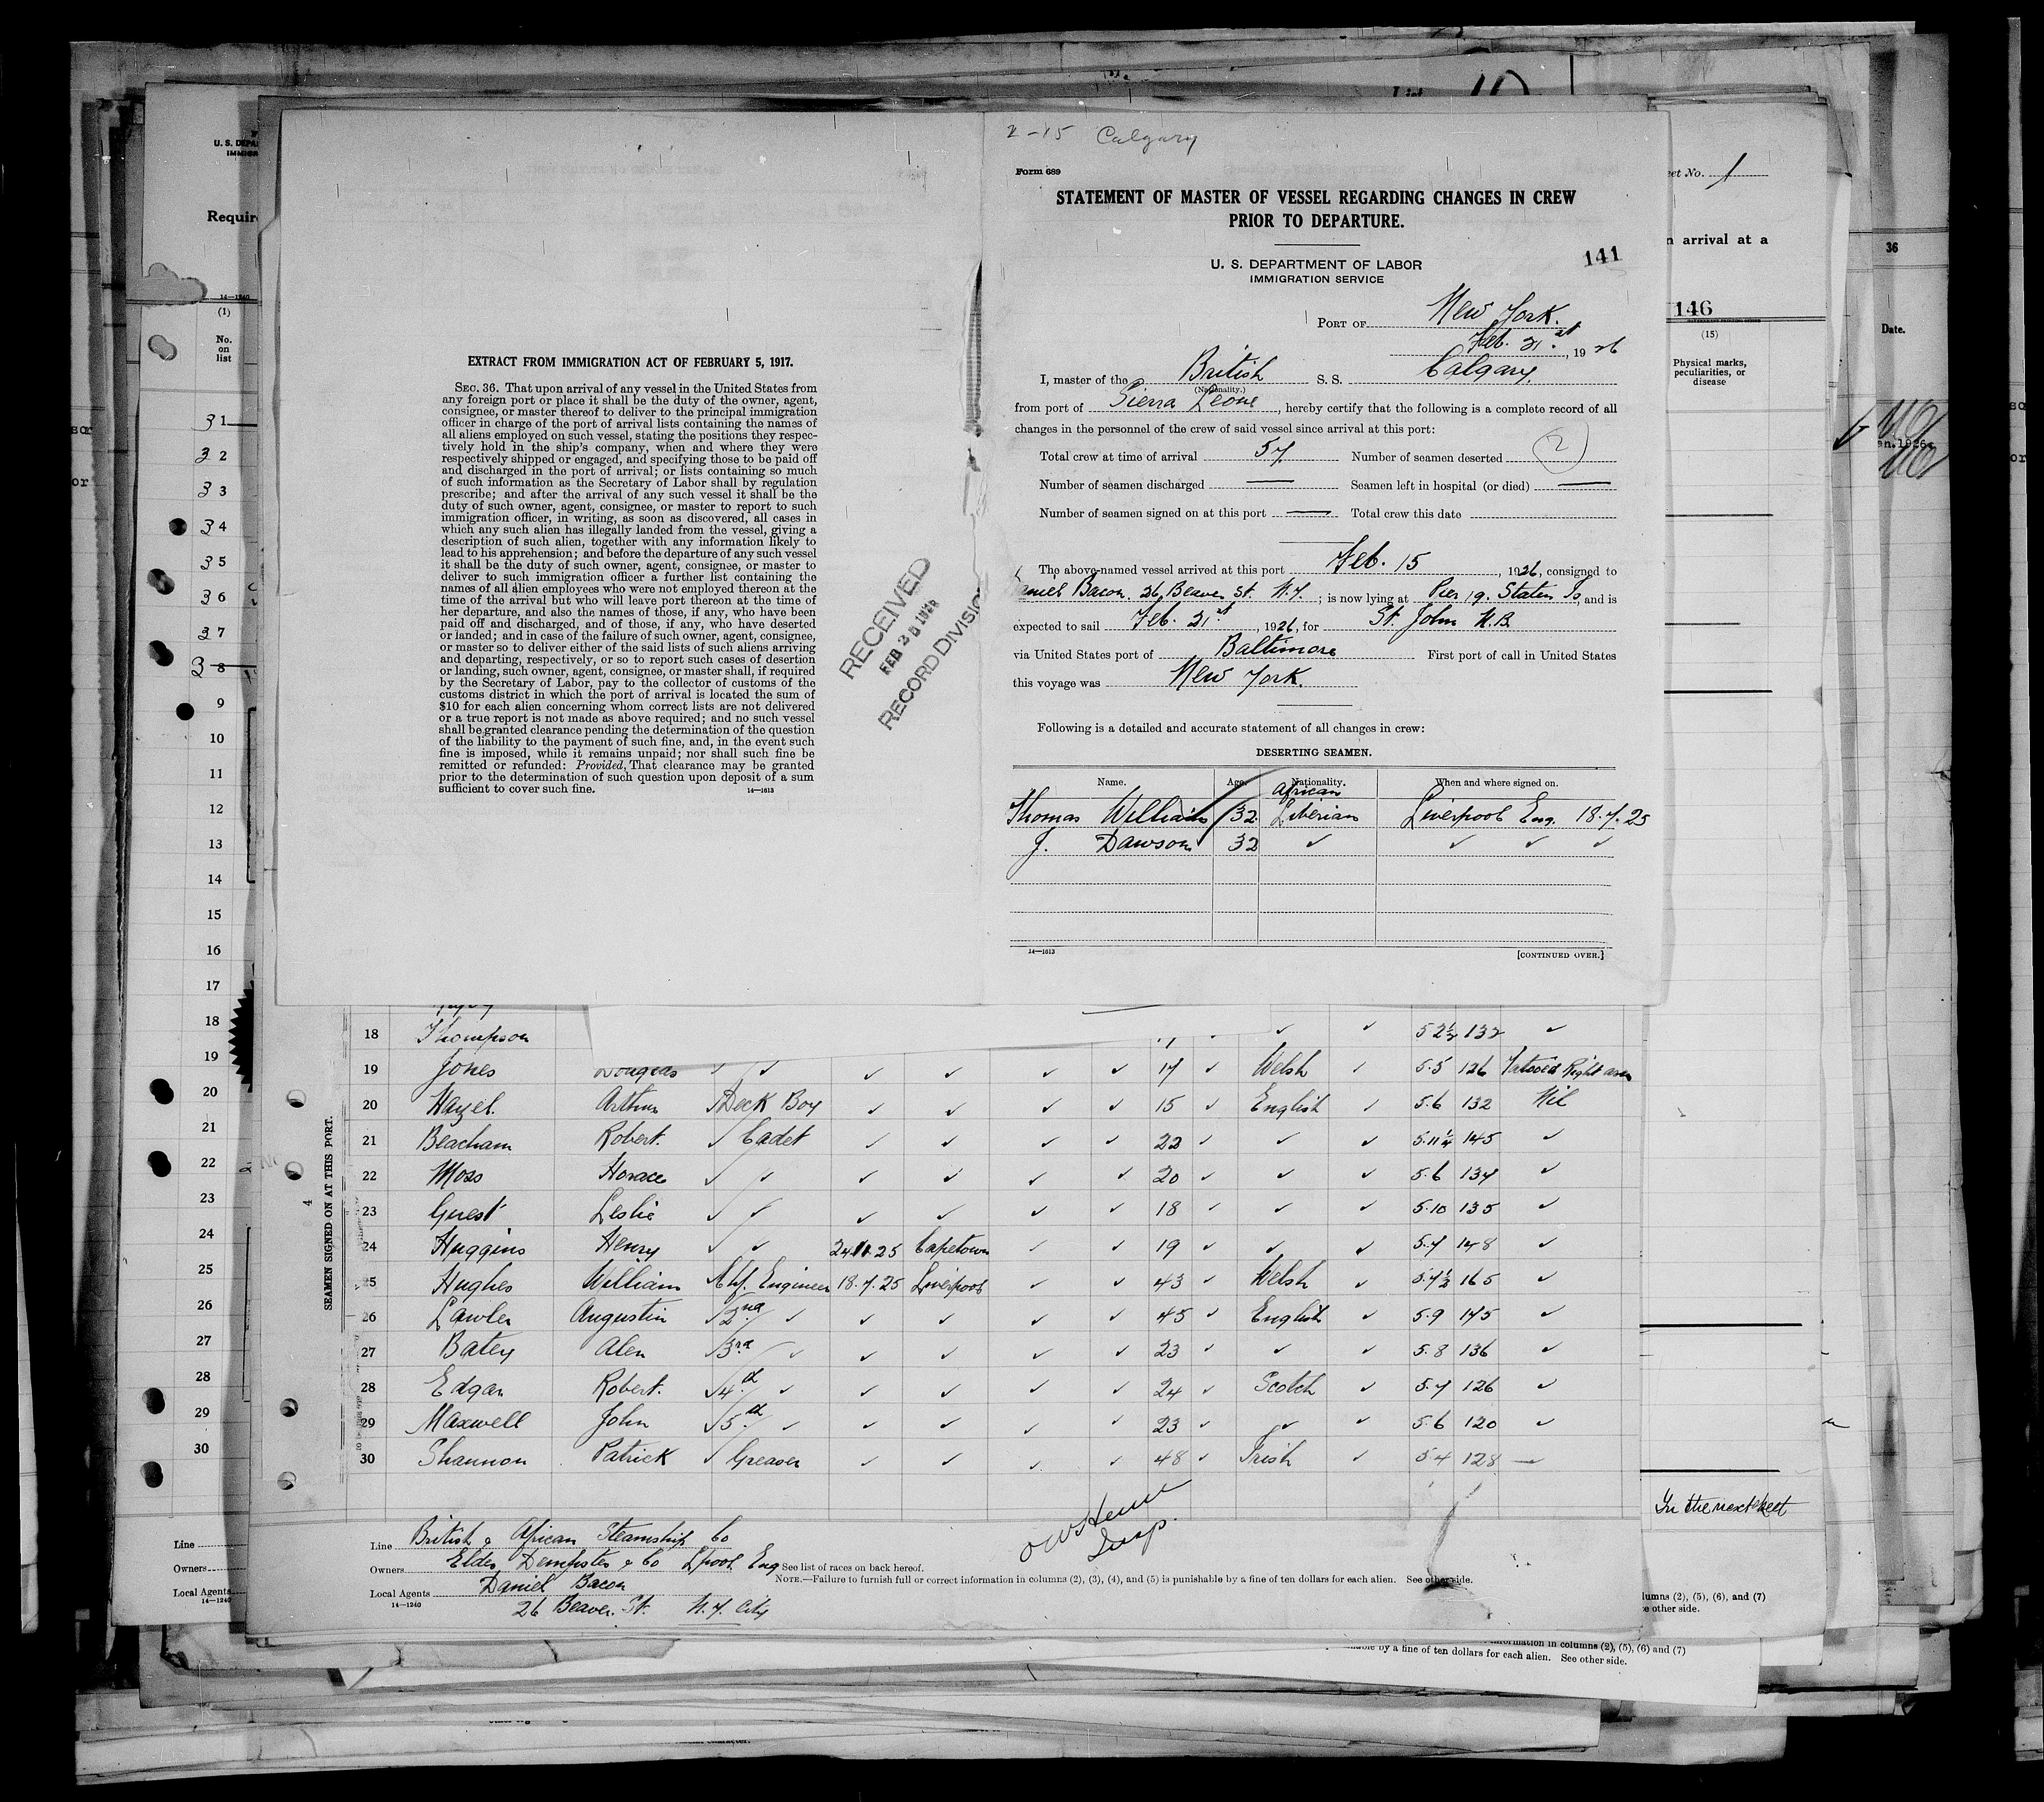 EXTRACT FROM IMMIGRATION ACT OF FEBRUARY 5, 1917.
SEC. 36. That upon arrival of any vessel in the United States from
any foreign port or place it shall be the duty of the owner, agent,
consignee, or master thereof to deliver to the principal immigration
officer in charge of the port of arrival lists containing the names of
all aliens employed on such vessel, stating the positions they respec-
tively hold in the ship's company, when and where they were
respectively shipped or engaged, and specifying those to be paid off
and discharged in the port of arrival; or lists containing so much
of such information as the Secretary of Labor shall by regulation
prescribe; and after the arrival of any such vessel it shall be the
duty of such owner, agent, consignee, or master to report to such
immigration officer, in writing, as soon as discovered, all cases in
which any such alien has illegally landed from the vessel, giving a
description of such alien, together with any information likely to
lead to his apprehension; and before the departure of any such vessel
it shall be the duty of such owner, agent, consignee, or master to
deliver to such immigration officer a further list containing the
names of all alien employees who were not employed thereon at the
time of the arrival but who will leave port thereon at the time of
her departure, and also the names of those, if any, who have been
paid off and discharged, and of those, if any, who have deserted
or landed; and in case of the failure of such owner, agent, consignee,
or master so to deliver either of the said lists of such aliens arriving
and departing, respectively, or so to report such cases of desertion
or landing, such owner, agent, consignee, or master shall, if required
by the Secretary of Labor, pay to the collector of customs of the
customs district in which the port of arrival is located the sum of
$10 for each alien concerning whom correct lists are not delivered
or a true report is not made as above required; and no such vessel
shall be granted clearance pending the determination of the question
of the liability to the payment of such fine, and, in the event such
fine is imposed, while it remains unpaid; nor shall such fine be
remitted or refunded: Provided, That clearance may be granted
prior to the determination of such question upon deposit of a sum
sufficient to cover such fine. 14—1613
RECEIVED
RECORD DIVISION
2-15 Calgary
Form 689
STATEMENT OF MASTER OF VESSEL REGARDING CHANGES IN CREW
PRIOR TO DEPARTURE.
141
U. S. DEPARTMENT OF LABOR
IMMIGRATION SERVICE
PORT OF New York.
Feb. 21st, 1926
I, master of the British S. S. Calgary.
(Nationality.)
from port of Sierra Leone, hereby certify that the following is a complete record of all
changes in the personnel of the crew of said vessel since arrival at this port:
Total crew at time of arrival 57 Number of seamen deserted 2
Number of seamen discharged — Seamen left in hospital (or died) —
Number of seamen signed on at this port — Total crew this date
The above-named vessel arrived at this port Feb. 15, 1926, consigned to
Daniel Bacon. 26 Beaver St. N.Y.; is now lying at Pier 19. Staten Is, and is
expected to sail Feb. 21st, 1926, for St. John N.B.
via United States port of Baltimore First port of call in United States
this voyage was New York.
Following is a detailed and accurate statement of all changes in crew:
DESERTING SEAMEN.
Name. Age. Nationality. When and where signed on.
African
Thomas William 32 Liberian Liverpool Eng. 18.7.25
J. Dawson 32 ✓ ✓ ✓ ✓
14—1613 [CONTINUED OVER.]
SEAMEN SIGNED ON AT THIS PORT.
4
18 Thompson ✓ ✓ 5 2½ 132 ✓
19 Jones Douglas ✓ ✓ ✓ ✓ ✓ ✓ 17 ✓ Welsh ✓ 5.5 126 Tatooed Right arm
20 Hazel. Arthur ✓ Deck Boy ✓ ✓ ✓ ✓ 15 ✓ English ✓ 5.6 132 Nil
21 Beacham Robert. ✓ Cadet ✓ ✓ ✓ ✓ 22 ✓ ✓ ✓ 5.11¼ 145 ✓
22 Moss Horace ✓ ✓ ✓ ✓ ✓ ✓ 20 ✓ ✓ ✓ 5.6 134 ✓
23 Guest Leslie ✓ ✓ ✓ ✓ ✓ ✓ 18 ✓ ✓ ✓ 5.10 135 ✓
24 Huggins Henry ✓ ✓ 24.11.25 Capetown ✓ ✓ 19 ✓ ✓ ✓ 5.7 148 ✓
25 Hughes William ✓ Chf. Engineer 18.7.25 Liverpool ✓ ✓ 43 ✓ Welsh ✓ 5.7½ 165 ✓
26 Lawler Augustin ✓ 2nd ✓ ✓ ✓ ✓ ✓ 45 ✓ English ✓ 5.9 145 ✓
27 Batey Alen ✓ 3rd ✓ ✓ ✓ ✓ ✓ 23 ✓ ✓ ✓ 5.8 136 ✓
28 Edgar Robert. ✓ 4th ✓ ✓ ✓ ✓ ✓ 24 ✓ Scotch ✓ 5.7 126 ✓
29 Maxwell John ✓ 5th ✓ ✓ ✓ ✓ ✓ 23 ✓ ✓ ✓ 5.6 120 ✓
30 Shannon Patrick ✓ Greaser ✓ ✓ ✓ ✓ 48 ✓ Irish ✓ 5.4 128 —
Insp.
Line British & African Steamship Co
Owners Elder Dempster & Co Lpool Eng See list of races on back hereof.
NOTE.—Failure to furnish full or correct information in columns (2), (3), (4), and (5) is punishable by a fine of ten dollars for each alien. See other side.
Local Agents Daniel Bacon
14—1240
26 Beaver St. N.Y. City
U. S. DEPA
IMMIGR
Require
14—1240
(1)
No.
on
list
31
32
33
34
35
36
37
38
9
10
11
12
13
14
15
16
17
18
19
20
21
22
23
24
25
26
27
28
29
30
Line
Owners
Local Agents
14—1240
eet No. 1
n arrival at a
146
(15)
Physical marks,
peculiarities, or
disease
36
Date.
In the next sheet
lumns (2), (5), (6), and (7)
e other side.
information in columns (2), (5), (6) and (7)
able by a fine of ten dollars for each alien. See other side.